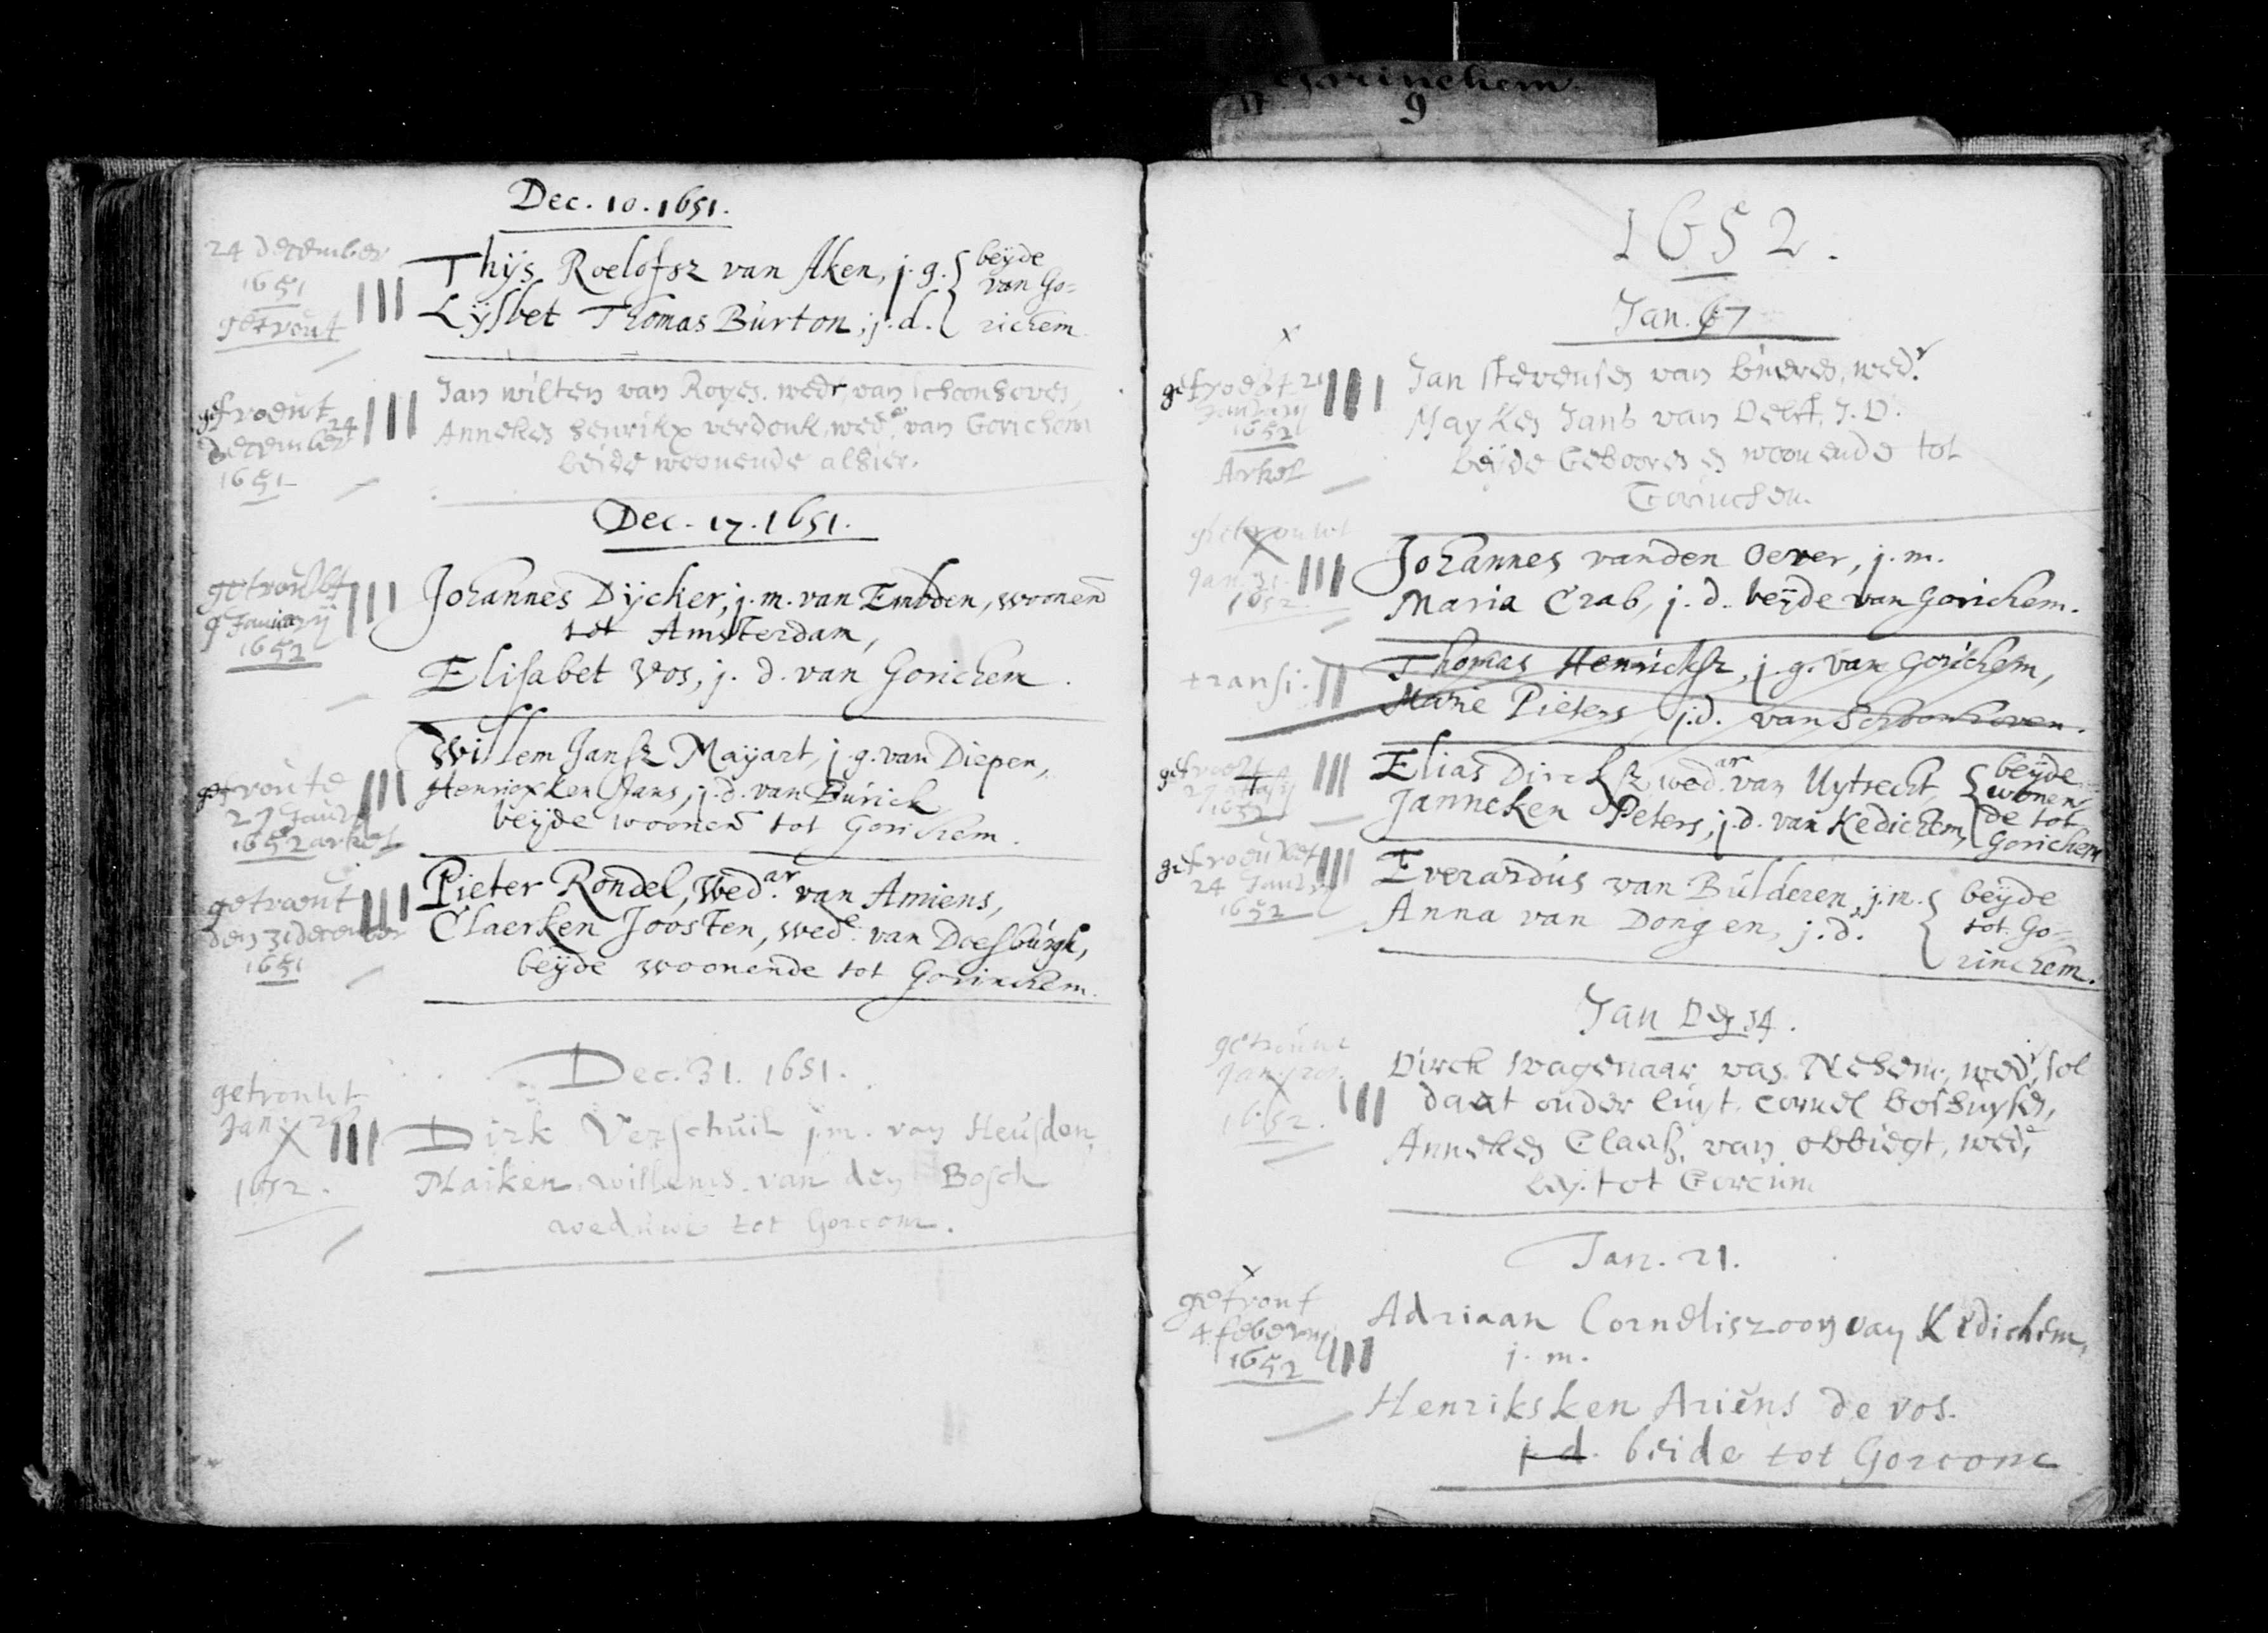 Gorinchem
9
Dec. 10. 1651.
24 december
1651
getrout
Thijs Roelofsz van Aken, j.g. beyde
van Go=
Lijsbet Thomas Burton, j.d. richem
getroeut
24
december
1651
Jan wilten van Royes. wedr, van schoonhoven,
Anneken henrikx verdonk, wede. van Gorichem
beide woonende alhier.
Dec. 17. 1651.
getrouwt
9 January
1652
Johannes Dijcker, j.m. van Embden, woonen
tot Amsterdam,
Elisabet Vos, j.d. van Gorichem.
getroute
27 Janu
1652 arkel
Willem Jansz Mayart, j.g. van Diepen,
Henricxken Jans, j.d. van Burick
beyde woonen tot Gorichem.
getrout
den 31 december
1651
Pieter Rondel, Wedar. van Amiens,
Claerken Joosten, wede. van Doesburgh,
beyde woonende tot Gorinchem.
Dec. 31. 1651.
getrouwt
Jan.
1652.
Dirk Verschuil j.m. van Heusden,
Maiken willems van den Bosch
weduwe tot Gorcom.
1652.
Jan. 7
getroewt 21
January
1652
Arkel
Jan stevensen van buren, wedr.
Mayken Jans van Delft, J.D.
beyde Gebooren en woonende tot
Gorinchem.
getrouwt
Jan. 31.
1652.
Johannes vanden Oever, j.m.
Maria Crab, j.d. beyde van Gorichem.
transi.
Thomas Henricksz, j.g. van Gorichem,
Marie Pieters j.d. van Schoonhoven.
1652
Elias Dircksz wedar. van Uytrecht, beyde
woonen=
Janneken Peters, j.d. van Kedichem, de tot
Gorichem
getrouwet
24 January
1652
Everardus van Bulderen, j.m. beyde
Anna van Dongen, j.d. tot Go=
rinchem.
Jan Den 14.
getrouwt
Jan.
1652.
Dirck wagenaar van, wedr, sol
daat onder luyt. cornel boshuysen,
Anneken Claass. van obbiegt, wede,
bey. tot Gorcum
Jan. 21.
getrout
4 feberuy
1652
Adriaan Corneliszoon van Kedichem,
j.m.
Henriksken Ariens de vos.
j.d. beide tot Gorcom